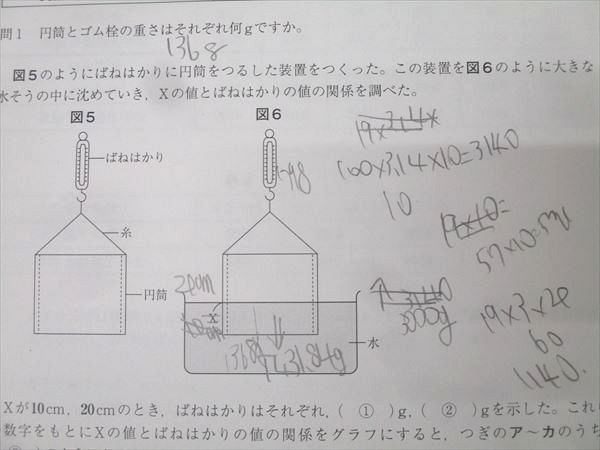 問1 円筒とゴム栓の重さはそれぞれ何gですか。
1368
図5のようにばねはかりに円筒をつるした装置をつくった。この装置を図6のように大きな
水そうの中に沈めていき，Xの値とばねはかりの値の関係を調べた。
図5
図6
ばねはかり
糸
円筒
100×3.14×10=3140
10
57×10=
20cm
X
水
3000g
1368
1431.84g
19×3×20
60
1140.
Xが10cm，20cmのとき，ばねはかりはそれぞれ，( ① )g，( ② )gを示した。これ
数字をもとにXの値とばねはかりの値の関係をグラフにすると，つぎのア〜カのうち